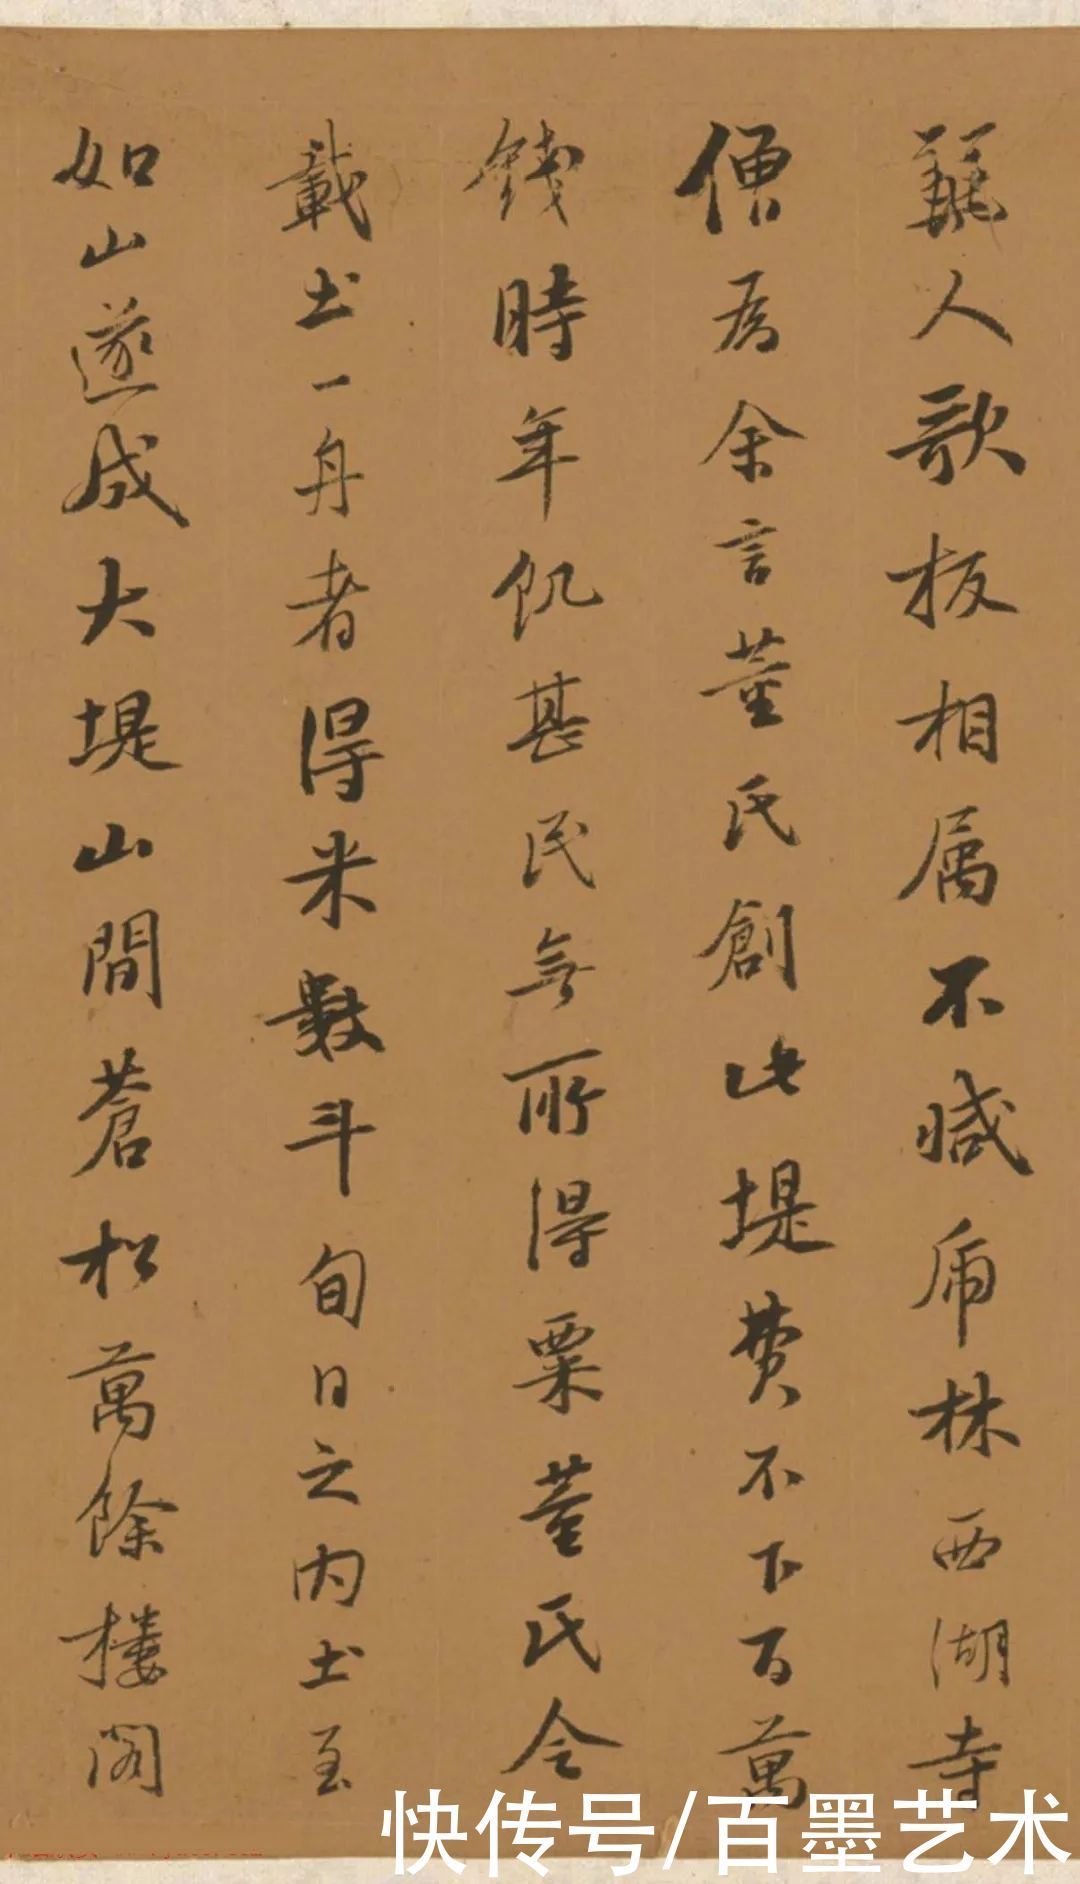 麗人歌板相属不減虎林西湖寺
僧为余言董氏創此堤費不下百萬
錢時年飢甚民無所得粟董氏令
載土一舟者得米數斗旬日之内土至
如山遂成大堤山間蒼松萬餘樓閣
快传号/百墨艺术